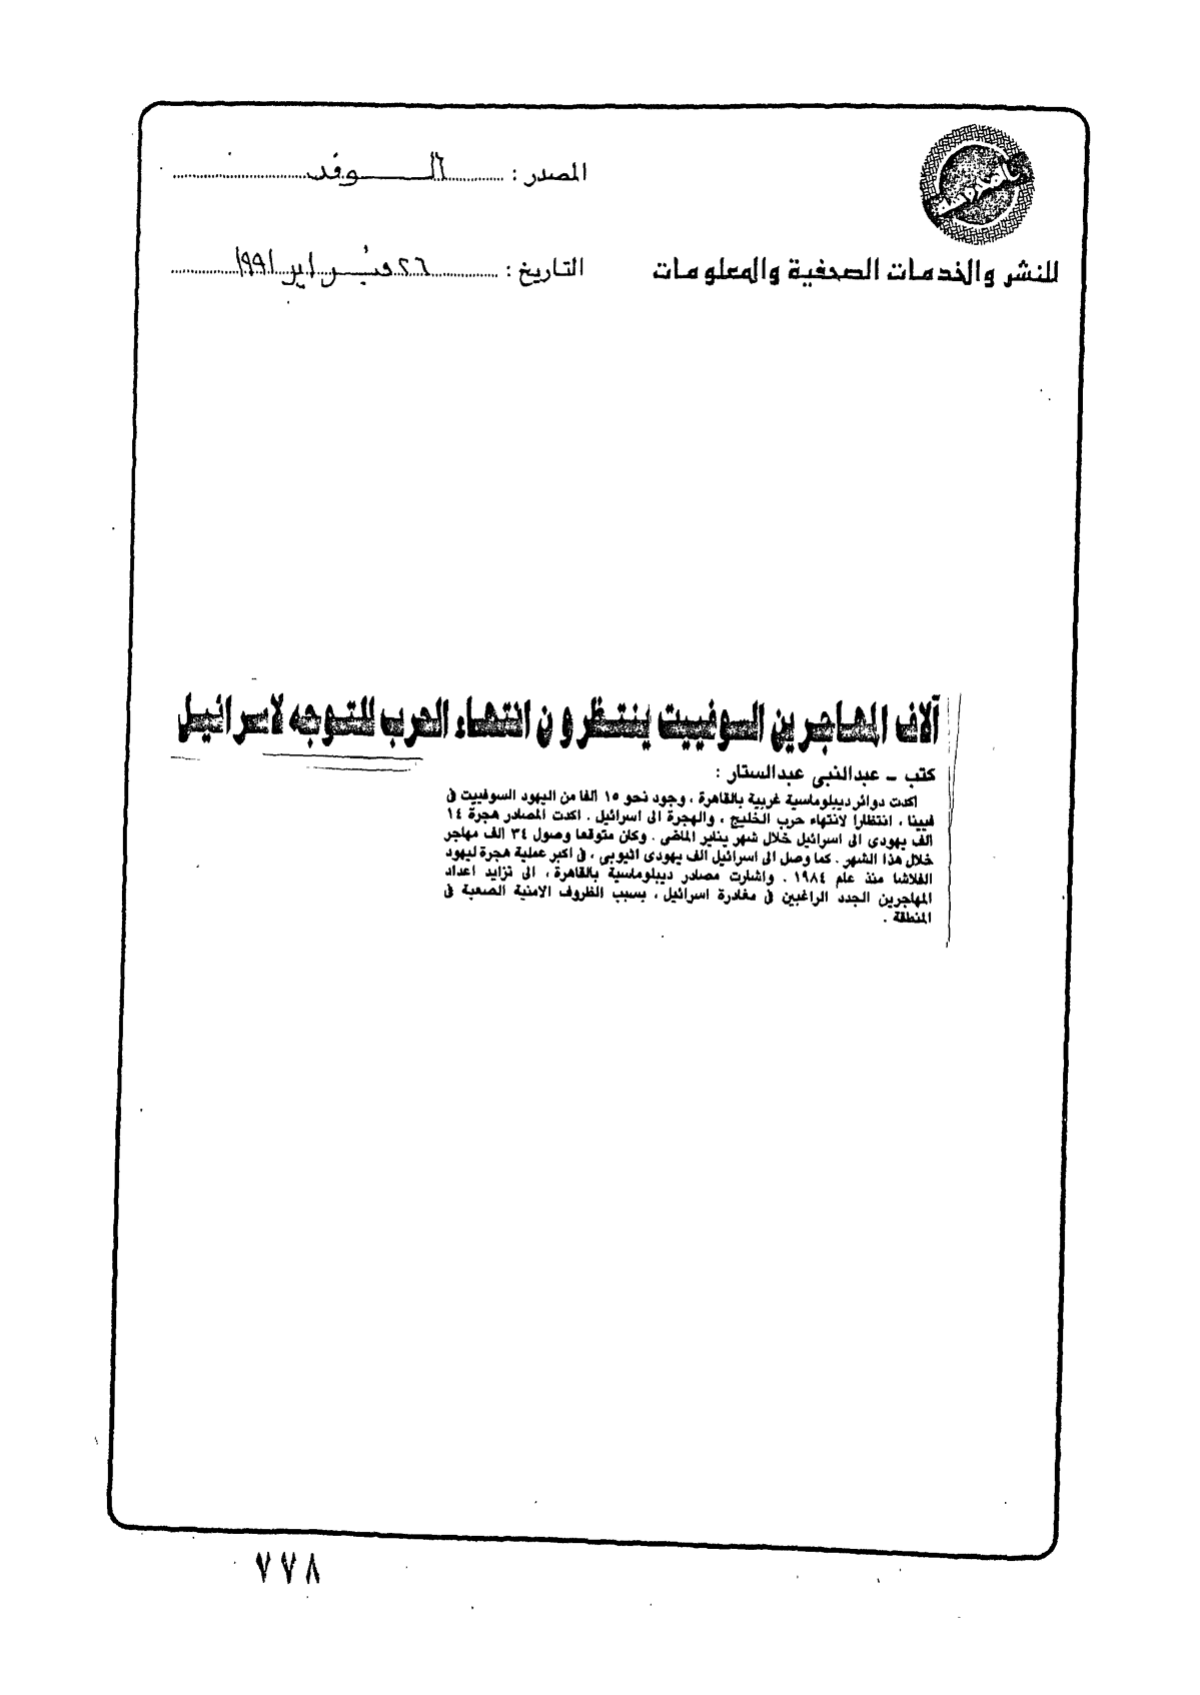 المصدر : الـــوفد
للنشر والخدمات الصحفية والمعلومات
التاريخ : ٢٦ فبراير ١٩٩١
آلاف المهاجرين السوفييت ينتظرون انتهاء الحرب للتوجه لاسرائيل
كتب - عبدالنبى عبدالستار :
اكدت دوائر ديبلوماسية غربية بالقاهرة ، وجود نحو ١٥ ألفا من اليهود السوفييت فى
فيينا ، انتظارا لانتهاء حرب الخليج ، والهجرة الى اسرائيل . اكدت المصادر هجرة ١٤
الف يهودى الى اسرائيل خلال شهر يناير الماضى . وكان متوقعا وصول ٣٤ الف مهاجر
خلال هذا الشهر . كما وصل الى اسرائيل الف يهودى اثيوبى ، فى اكبر عملية هجرة ليهود
الفلاشا منذ عام ١٩٨٤ . واشارت مصادر ديبلوماسية بالقاهرة ، الى تزايد اعداد
المهاجرين الجدد الراغبين فى مغادرة اسرائيل ، بسبب الظروف الامنية الصعبة فى
المنطقة .
٧٧٨